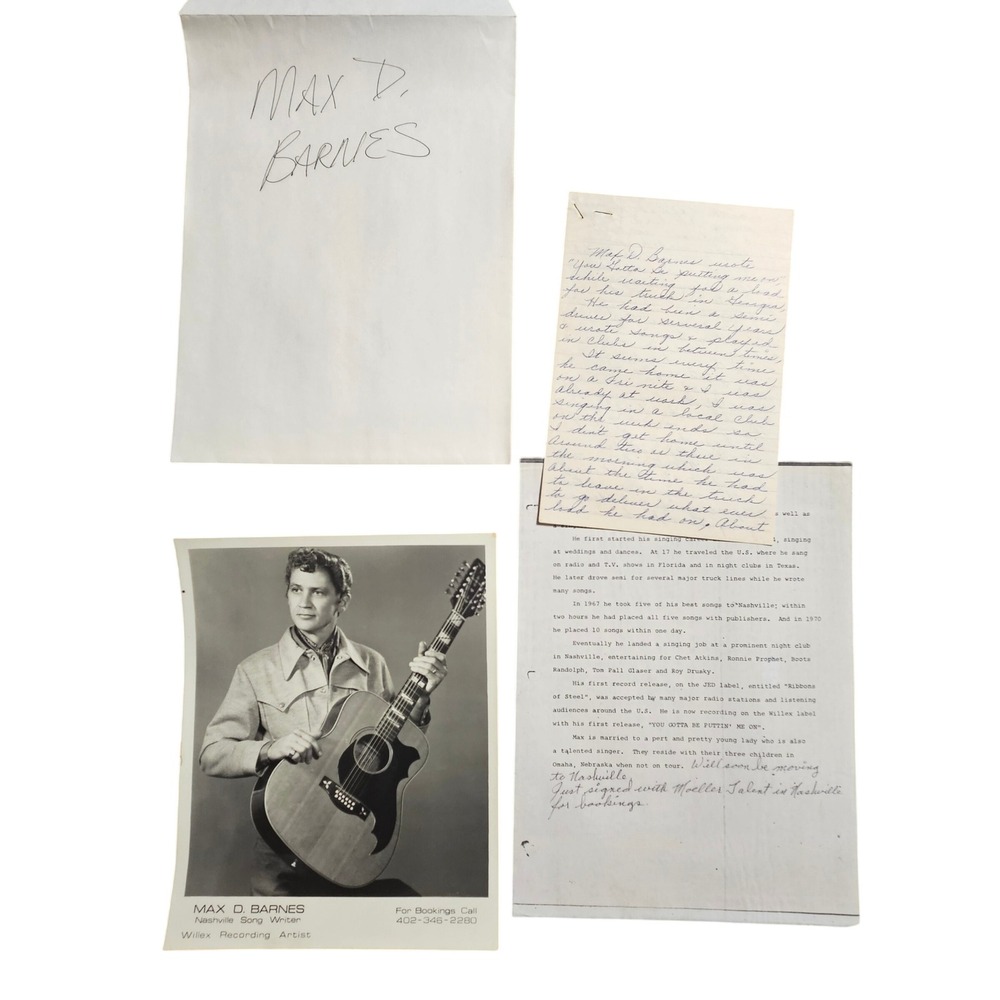 MAX D.
BARNES
Max D. Barnes wrote
"You Gotta be putting me on"
while waiting for a load
for his truck in Georgia,
He had bin a semi
driver for serveral years
& wrote songs & played
in Clubs in between times
It seems every time
he came home it was
on a Fri nite & I was
already at work, I was
singing in a local Club
on the week ends so
I didn't get home until
around two or three in
the morning which was
about the time he had
to leave in the truck
to go deliver what ever
load he had on. About
s well as
He first started his singing , singing
at weddings and dances. At 17 he traveled the U.S. where he sang
on radio and T.V. shows in Florida and in night clubs in Texas.
He later drove semi for several major truck lines while he wrote
many songs.
In 1967 he took five of his best songs to Nashville; within
two hours he had placed all five songs with publishers. And in 1970
he placed 10 songs within one day.
Eventually he landed a singing job at a prominent night club
in Nashville, entertaining for Chet Atkins, Ronnie Prophet, Boots
Randolph, Tom Pall Glaser and Roy Drusky.
His first record release, on the JED label, entitled "Ribbons
of Steel", was accepted by many major radio stations and listening
audiences around the U.S. He is now recording on the Willex label
with his first release, "YOU GOTTA BE PUTTIN' ME ON".
Max is married to a pert and pretty young lady who is also
a talented singer. They reside with their three children in
Omaha, Nebraska when not on tour. Will soon be moving
to Nashville
Just signed with Moeller Talent in Nashville
for bookings
MAX D. BARNES
Nashville Song Writer
Willex Recording Artist
For Bookings Call
402-346-2280